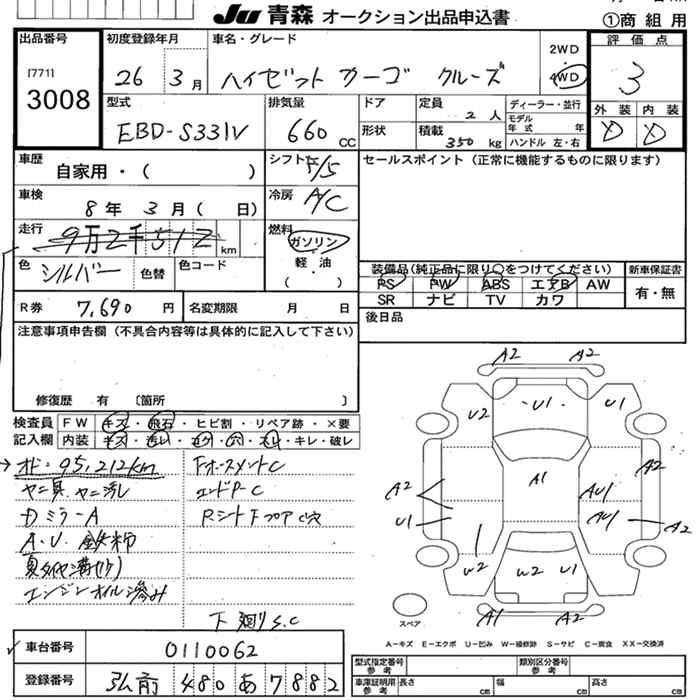 JU 青森 オークション出品申込書
①商 組 用
出品番号
[771]
3008
初度登録年月
26 年 3 月
車名・グレード
ハイゼット カーゴ クルーズ
2WD
4WD
評 価 点
3
型式
EBD-S331V
排気量
660 CC
ドア
形状
定員
2 人
積載
350 kg
ディーラー・並行
モデル
年 式 年
ハンドル 左・右
外 装
内 装
D
D
車歴
自家用・( )
シフト
F/5
セールスポイント (正常に機能するものに限ります)
車検
8 年 3 月 ( 日)
冷房
A/C
走行
9万2千512 km
燃料
ガソリン
軽 油
( )
色
シルバー
色替
色コード
装備品(純正品に限り○をつけてください)
新車保証書
PS PW ABS エアB AW
SR ナビ TV カワ
有・無
R券
7,690 円
名変期限 月 日
後日品
注意事項申告欄 (不具合内容等は具体的に記入して下さい)
修復歴 有 〔箇所 〕
検査員
記入欄
FW キズ・飛石・ヒビ割・リペア跡・×要
内装 キズ・汚レ・コゲ・穴・スレ・キレ・破レ
→ オド:95,212km
ヤニ臭、ヤニ汚し
Dミラー A
A.U. 鉄粉
夏タイヤ溝
エンジンオイル滲み
フォースメント C
エンドP-C
Rシート F フロア C穴
下廻り S.C
A2 A2
U2 U1 U1
A1
A2
U1
A2
AU1
AU1
A2
W2 W2 U1 U2
A1 A2
スペア
A－キズ E－エクボ U－凹み W－補修跡 S－サビ C－腐食 XX－交換済
車台番号
0110062
登録番号
弘前 480 あ 7882
型式指定番号
参 考
類別区分番号
参 考
車庫証明用
参 考
長さ cm
幅 cm
高さ cm